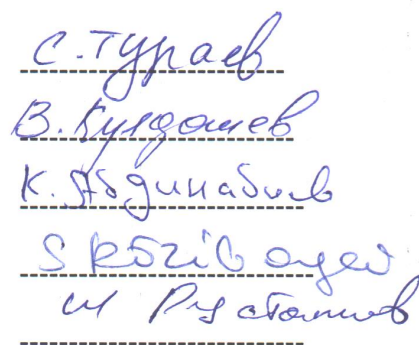 С. Тураев
В. Кулдошев
К. Абдинабиев
S Roziboyev
М Рустамов